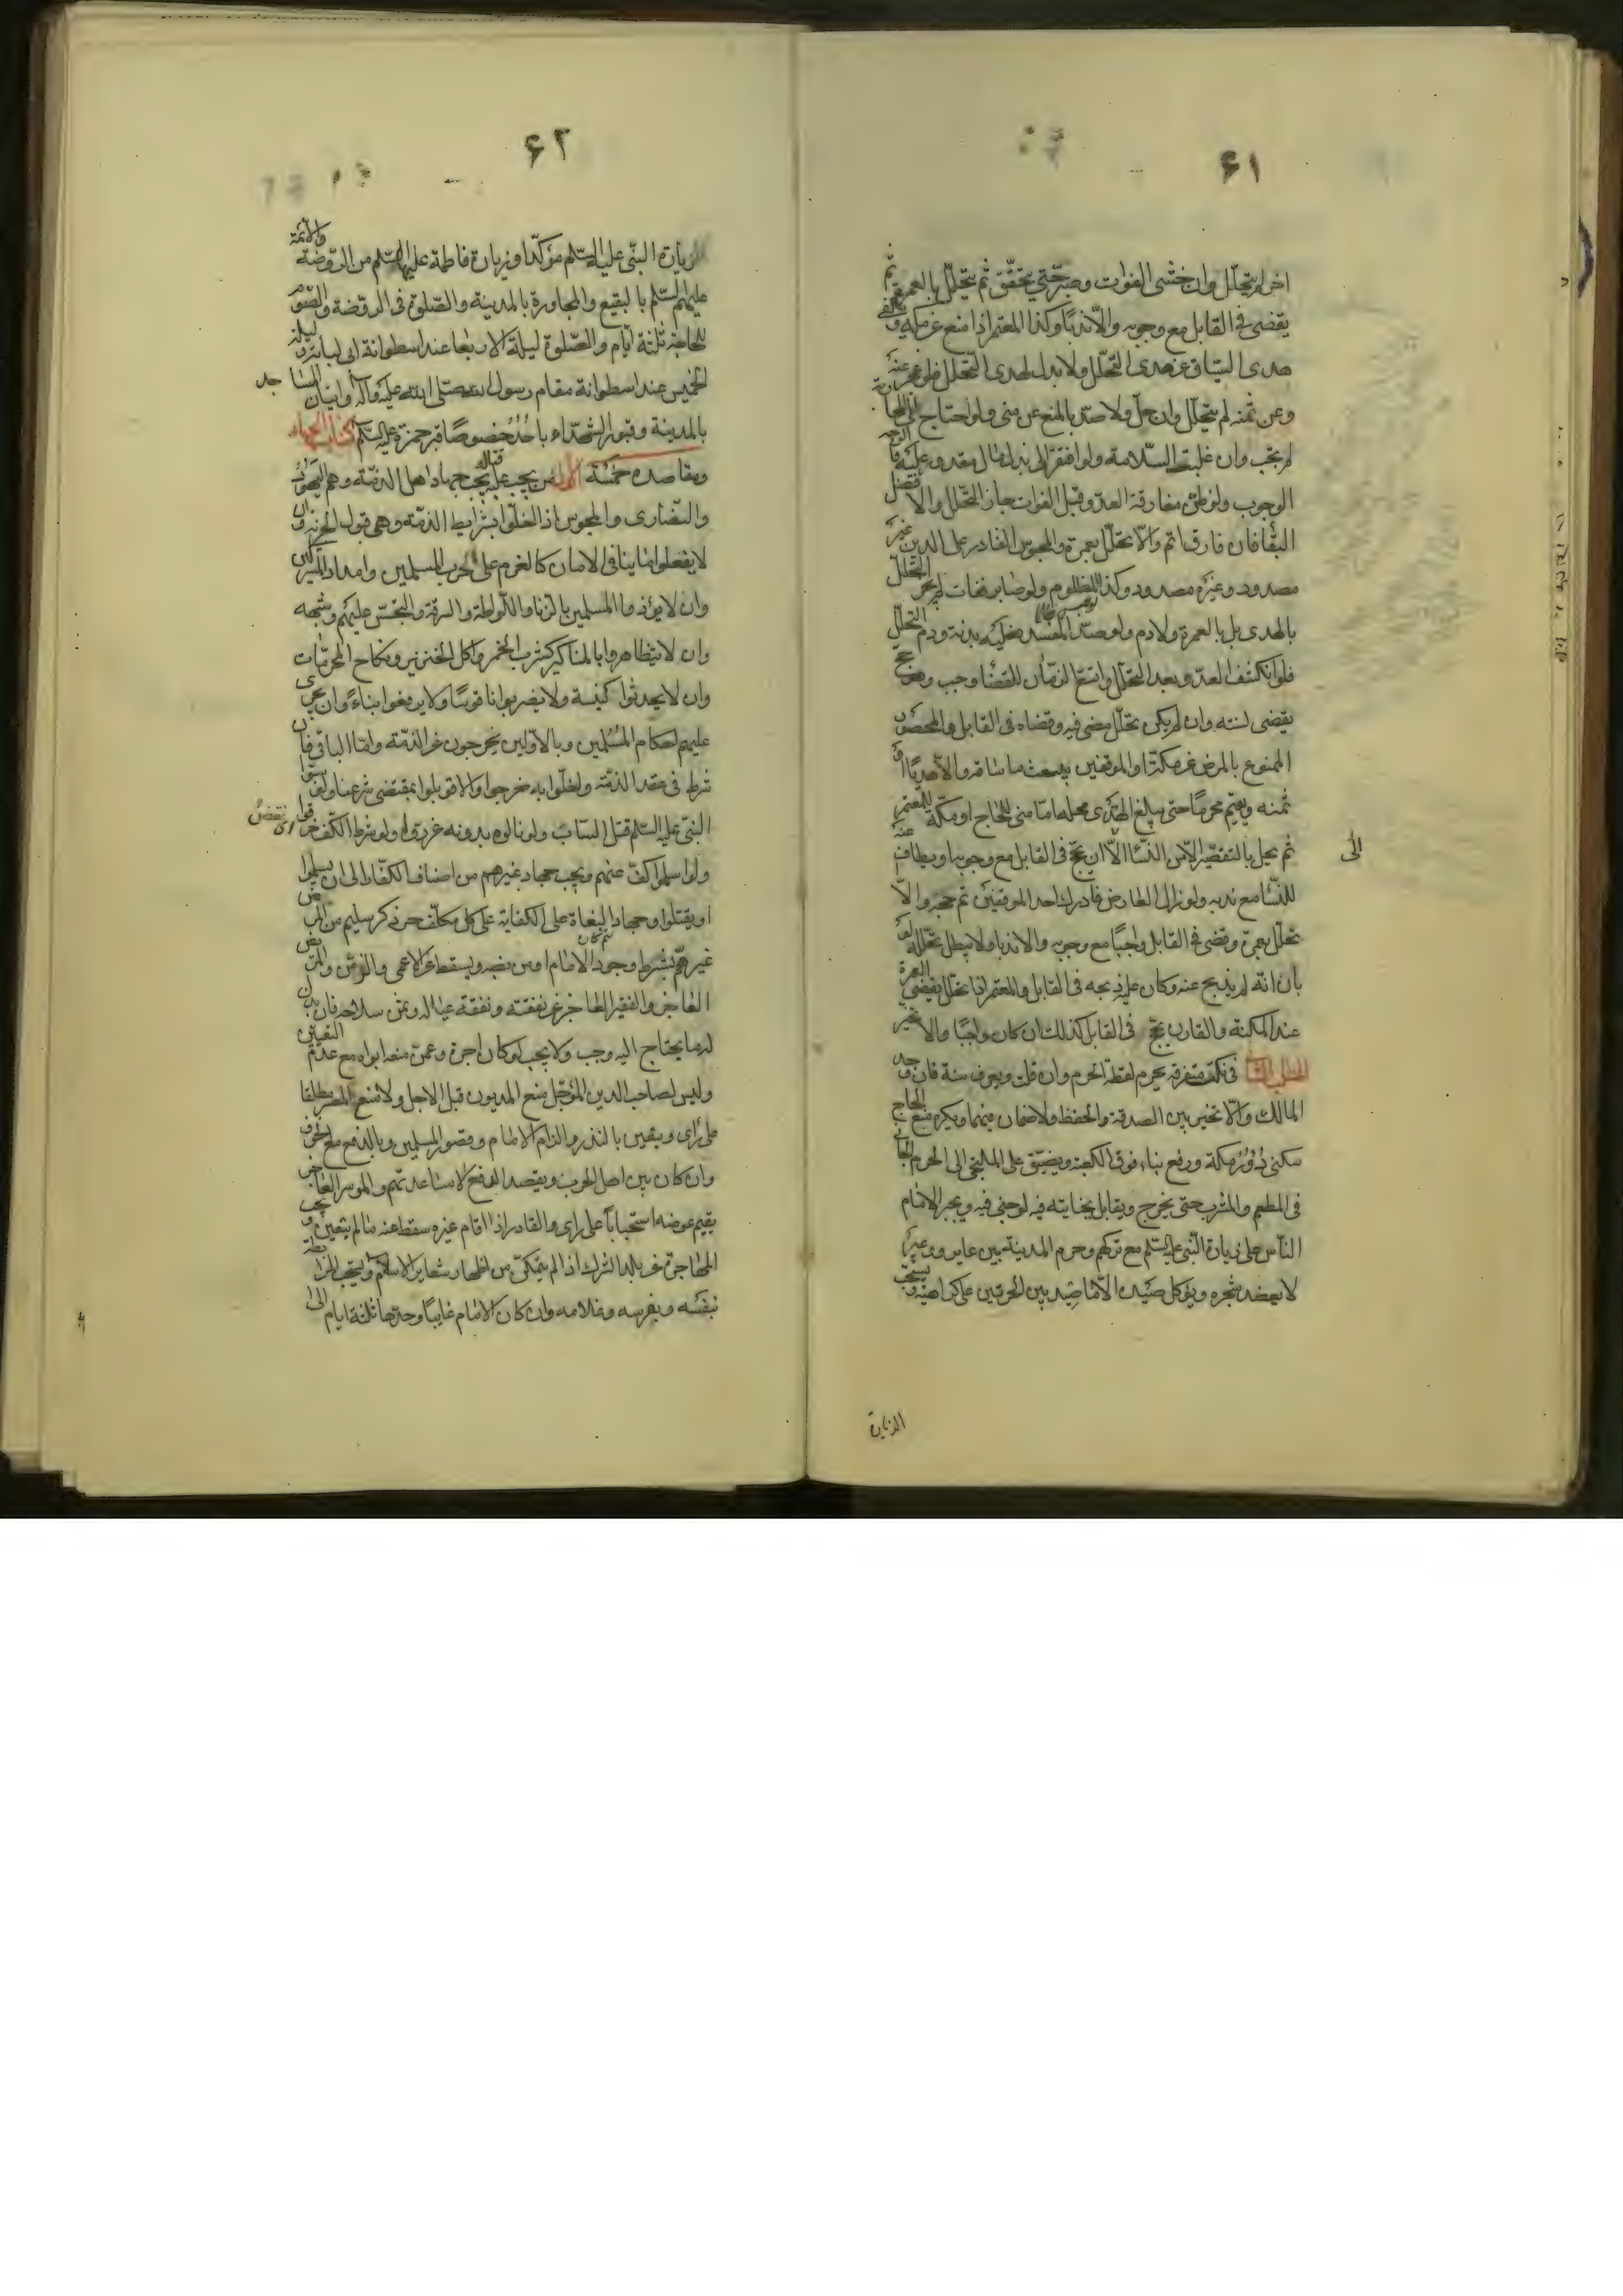 ۶۱
اخر لم يتحلّل وان خشى الفوات وصبر حتى يتحقّق ثم يتحلّل بالعمرة ثم
يقضى فى القابل مع وجوبه والّا ندبًا وكذا المعتمر اذا منع عن مكة ويكفى
هدى السياق عن هدى التحلّل ولا بدل لهدى التحلّل فلو عجز عنه
وعن ثمنه لم يتحلّل وان حلّ ولا صدّ بالمنع عن منى ولو احتاج الى المحاربة
لم يجب وان غلبت السلامة ولو افتقر الى بذل مال مقدور عليه فالوجه
الوجوب ولو ظنّ مفارقة العدو قبل الفوات جاز التحلّل والافضل
البقا فان فارق اتم والّا تحلّل بعمرة والمحبوس القادر على الدين غير
مصدود وغيره مصدود وكذا المظلوم ولو صابر ففات لم يجز التحلّل
بالهدى بل بالعمرة ولا دم ولو صدّ المفسد فعليه بدنة ودم التحلّل
فلو انكشف العدو بعد التحلل واتسع الزمان للقضا وجب وهو حج
يقضى لسنته وان لم يكن تحلّل مضى فيه وقضاه فى القابل والمحصور
الممنوع بالمرض عن مكة او الموقفين يبعث ما ساقه والّا هديًا او
ثمنه ويقيم محرمًا حتى يبلغ الهدى محله امّا منى للحاج او مكّة للمعتمر
ثم يحل بالتقصير الّا من النسا الّا ان يحج فى القابل مع وجوبها ويطاف عنه
الى
للنسا مع ندبه ولو زال العارض فادرك احد الموقفين تم حجه والّا
تحلّل بعمرة وقضى فى القابل واجبًا مع وجوبه والا ندبا ولا يبطل تحلله لو
بان انه لم يذبح عنه وكان عليه ذبحه فى القابل والمعتمر اذا تحلل يقضى العمرة
عند المكنة والقارن يحج فى القابل كذلك ان كان واجبًا والا تخير
فى نكت متفرقة يحرم لقطة الحرم وان قلت ويعرف سنة فان وجد
المالك والّا تخير بين الصدقة والحفظ ولا ضمان فيهما ويكره منع الحاج
سكنى دور مكة ورفع بناء فوق الكعبة ويضيّق على الملتجى الى الحرم الجانى
فى المطعم والمشرب حتى يخرج ويقابل بجنايته فيه لو جنى فيه ويجبر الامام
الناس على زيارة النبى عليه السلم مع تركهم وحرم المدينة بين عاير ووعير
لا يعضد شجره ويؤكل صيده الّا ما صيد بين الحرتين على كراهية ويستحب
الزيارة
۶۲
زيارة النبى عليه السلم مؤكّدا وزيارة فاطمة عليها السلم من الروضة والائمة
عليهم السلم بالبقيع والمجاورة بالمدينة والصلوة فى الروضة والصوم
للحاجة ثلثة ايام والصلوة ليلة الاربعا عند اسطوانة ابى لبابة وليلة
الخميس عند اسطوانة مقام رسول الله صلى الله عليه واله واتيان المساجد
بالمدينة وقبور الشهداء باحد خصوصًا قبر حمزة عليه السلم كتاب الجهاد
ومقاصده خمسة الاول من يجب قتاله يجب جهاد اهل الذمّة وهم اليهود
والنصارى والمجوس اذا اخلّوا بشرايط الذمّة وهى قبول الجزية وان
لا يفعلوا ما ينافى الامان كالعزم على حرب المسلمين وامداد المشركين
وان لا يؤذوا المسلمين بالزنا واللواطة والسرقة والتجسّس عليهم وشبهه
وان لا يتظاهروا بالمناكير كشرب الخمر واكل الخنزير ونكاح المحرّمات
وان لا يحدثوا كنيسة ولا يضربوا ناقوسًا ولا يرفعوا بناءً وان يجرى
عليهم احكام المسلمين وبالاولين يخرجون عن الذمّة وامّا الباقى فان
شرط فى عقد الذمّة واخلّوا به خرجوا والا قوبلوا بمقتضى شرعنا ولو سبّوا
النبى عليه السلم قتل السابّ ولو نالوه بدونه عزروا ولو شرط الكف خرقوا
اى نقض
ولو اسلموا كفّ عنهم ويجب جهاد غيرهم من اصناف الكفّار الى ان يسلموا
او يقتلوا وجهاد البغاة على الكفاية على كل مكلّف حر ذكر سليم من المرض
غير همّ بشرط وجود الامام او من نصبه ويسقط عن الاعمى والزمن والمريض
العاجز والفقير العاجز عن نفقته ونفقة عياله وثمن سلاحه فان بذل
له ما يحتاج اليه وجب ولا يجب لو كان اجرة وعمّن منعه ابواه مع عدم التعيين
وليس لصاحب الدين المؤجّل منع المديون قبل الاجل ولا منع المعسر مطلقا
على راى ويتعين بالنذر والزام الامام وقصور المسلمين وبالدفع مع الخوف
وان كان بين اهل الحرب ويقصد الدفع لا مساعدتهم والموسر العاجز
يقيم عوضه استحبابًا على راى والقادر اذا اقام غيره سقط عنه ما لم يتعين ويجب
المهاجرة عن بلد الشرك اذا لم يتمكّن من اظهار شعاير الاسلام ويستحب المرابطة
بنفسه وبفرسه وغلامه وان كان الامام غايبًا وحدها ثلثة ايام الى